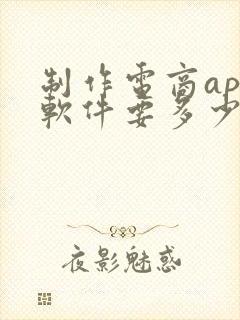 制作電商ap
軟件要多少
夜影魅惑